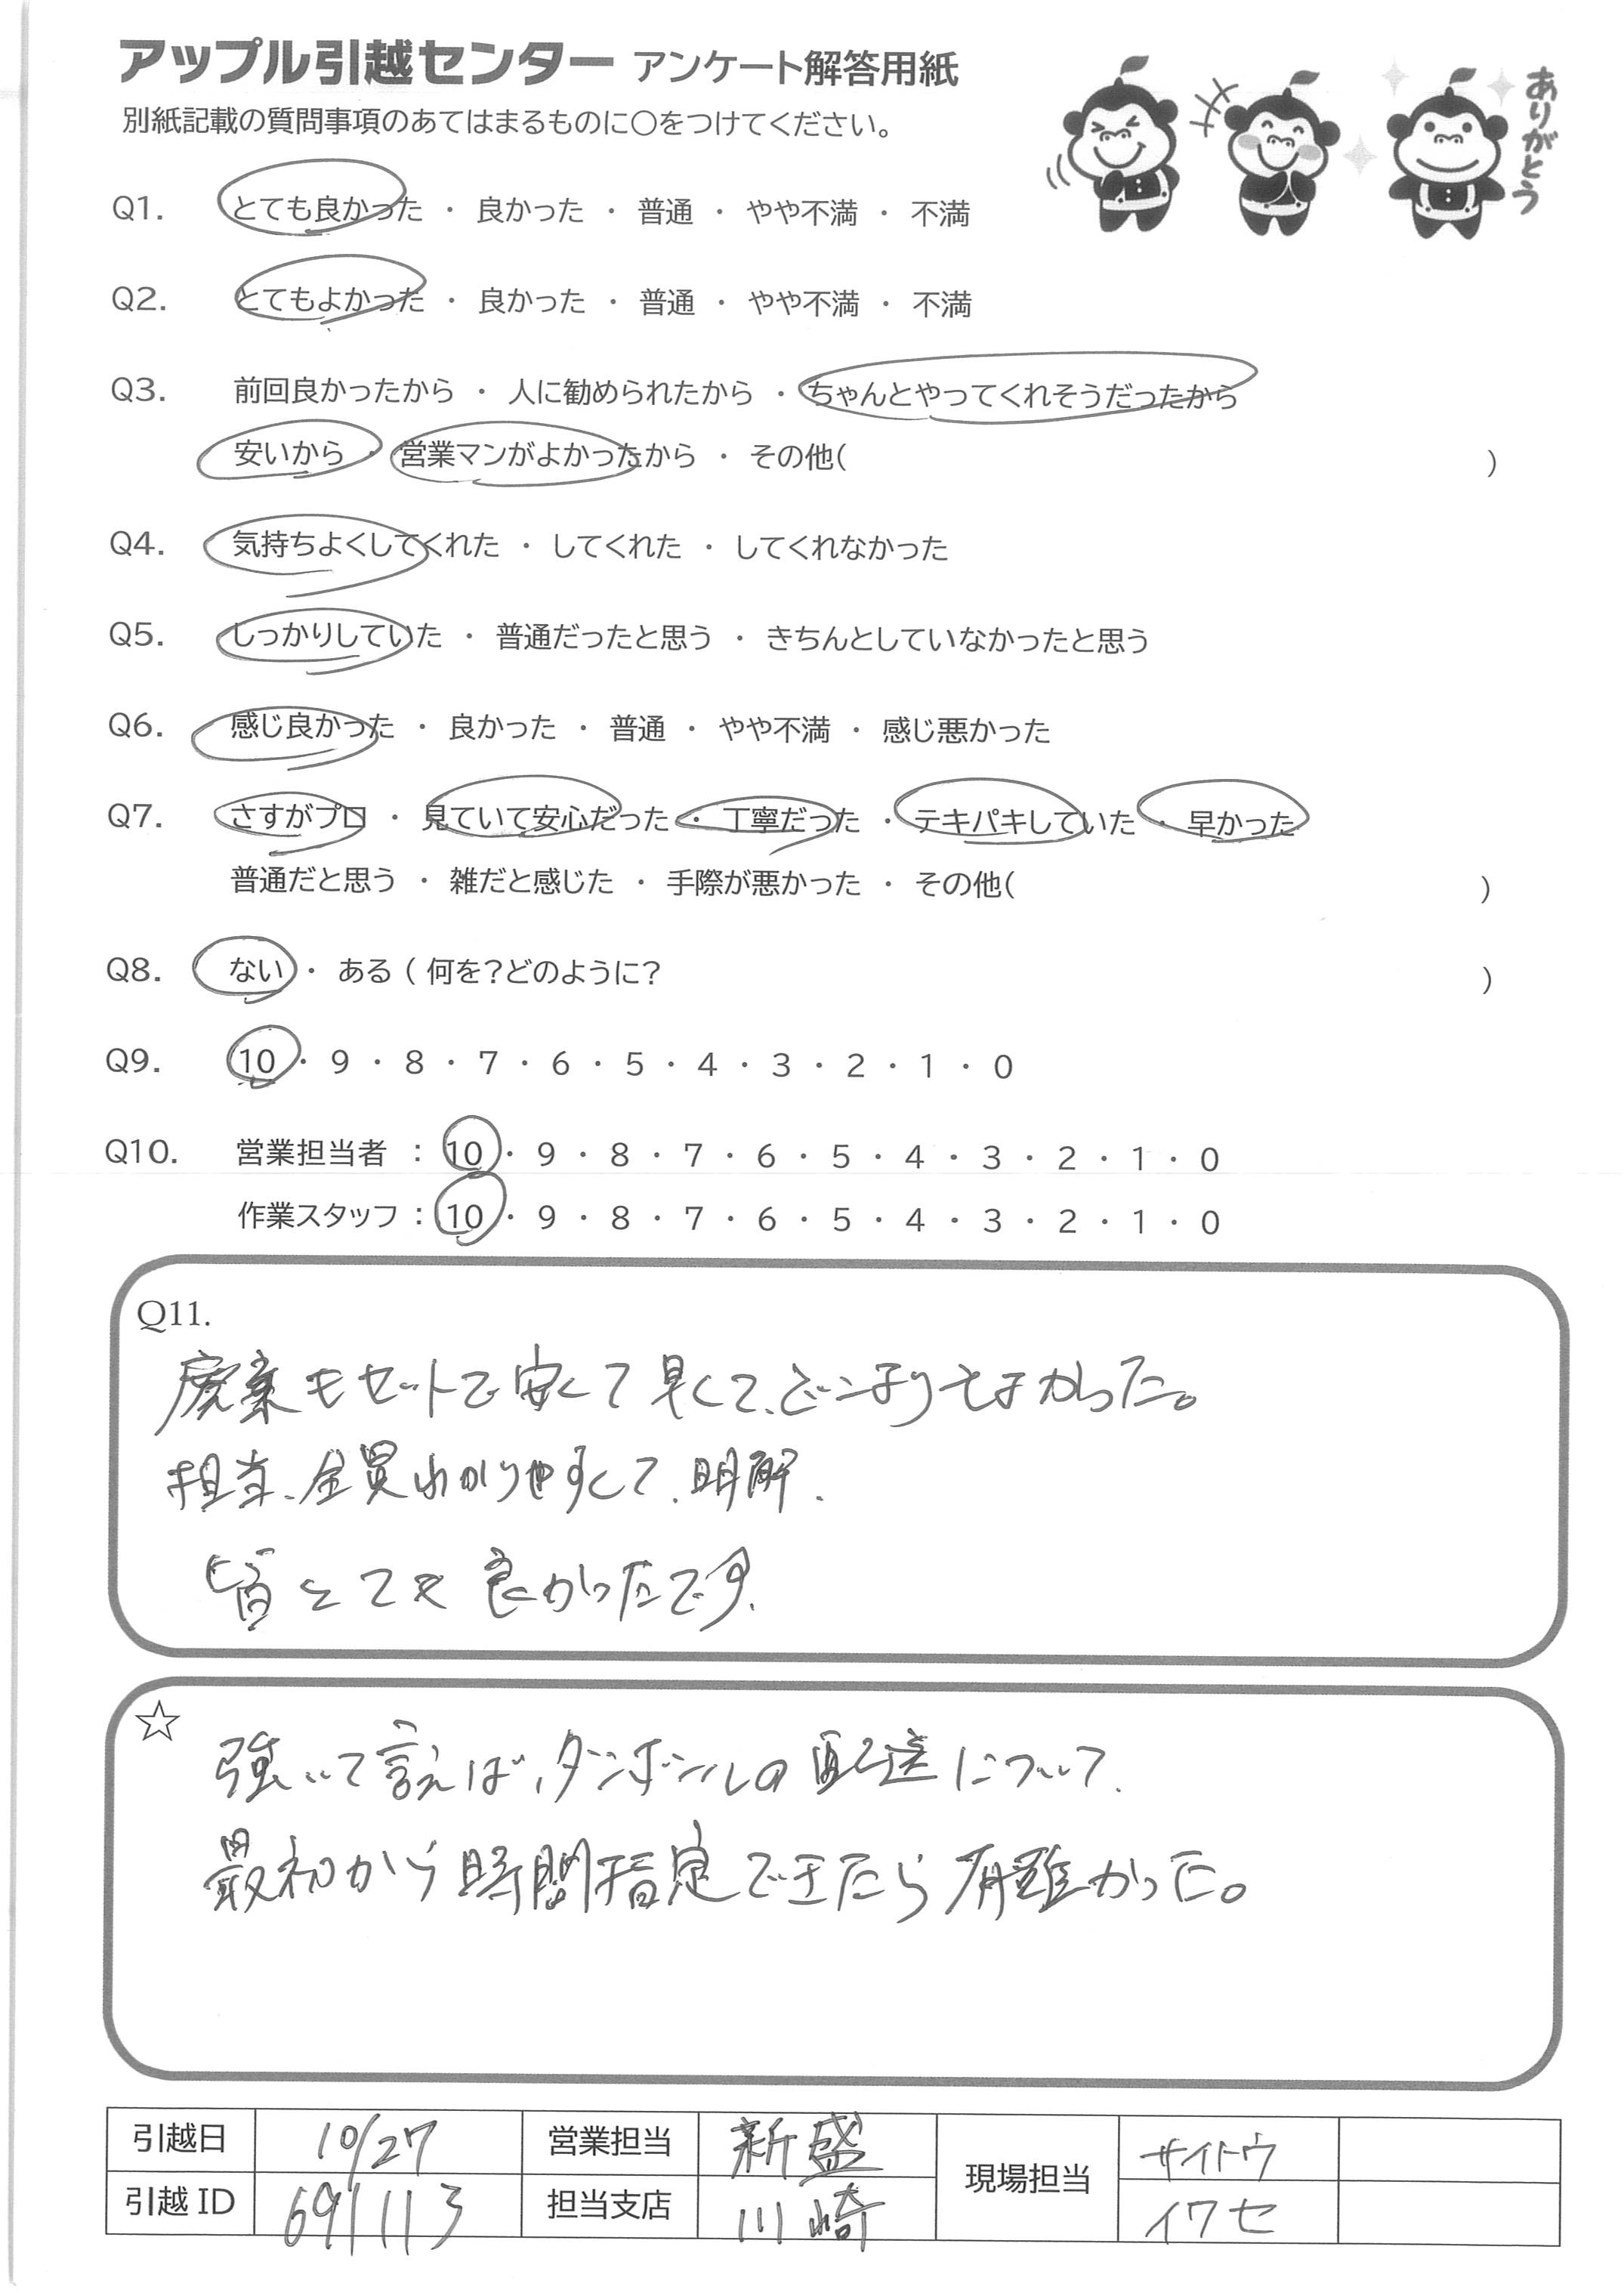 アップル引越センター アンケート解答用紙
別紙記載の質問事項のあてはまるものに○をつけてください。
ありがとう
Q1. とても良かった ・ 良かった ・ 普通 ・ やや不満 ・ 不満
Q2. とてもよかった ・ 良かった ・ 普通 ・ やや不満 ・ 不満
Q3. 前回良かったから ・ 人に勧められたから ・ ちゃんとやってくれそうだったから
安いから ・ 営業マンがよかったから ・ その他( )
Q4. 気持ちよくしてくれた ・ してくれた ・ してくれなかった
Q5. しっかりしていた ・ 普通だったと思う ・ きちんとしていなかったと思う
Q6. 感じ良かった ・ 良かった ・ 普通 ・ やや不満 ・ 感じ悪かった
Q7. さすがプロ ・ 見ていて安心だった ・ 丁寧だった ・ テキパキしていた ・ 早かった
普通だと思う ・ 雑だと感じた ・ 手際が悪かった ・ その他( )
Q8. ない ・ ある ( 何を?どのように? )
Q9. 10 ・ 9 ・ 8 ・ 7 ・ 6 ・ 5 ・ 4 ・ 3 ・ 2 ・ 1 ・ 0
Q10. 営業担当者 : 10 ・ 9 ・ 8 ・ 7 ・ 6 ・ 5 ・ 4 ・ 3 ・ 2 ・ 1 ・ 0
作業スタッフ : 10 ・ 9 ・ 8 ・ 7 ・ 6 ・ 5 ・ 4 ・ 3 ・ 2 ・ 1 ・ 0
Q11.
廃棄もセットで安くて早くて、どこよりもよかった。
担当、全員わかりやすくて、明解.
皆とても良かったです.
☆ 強いて言えば、ダンボールの配送について.
最初から時間指定できたら有難かった。
引越日 10/27 営業担当 新盛 現場担当 サイトウ
引越ID 691113 担当支店 川崎 イワセ